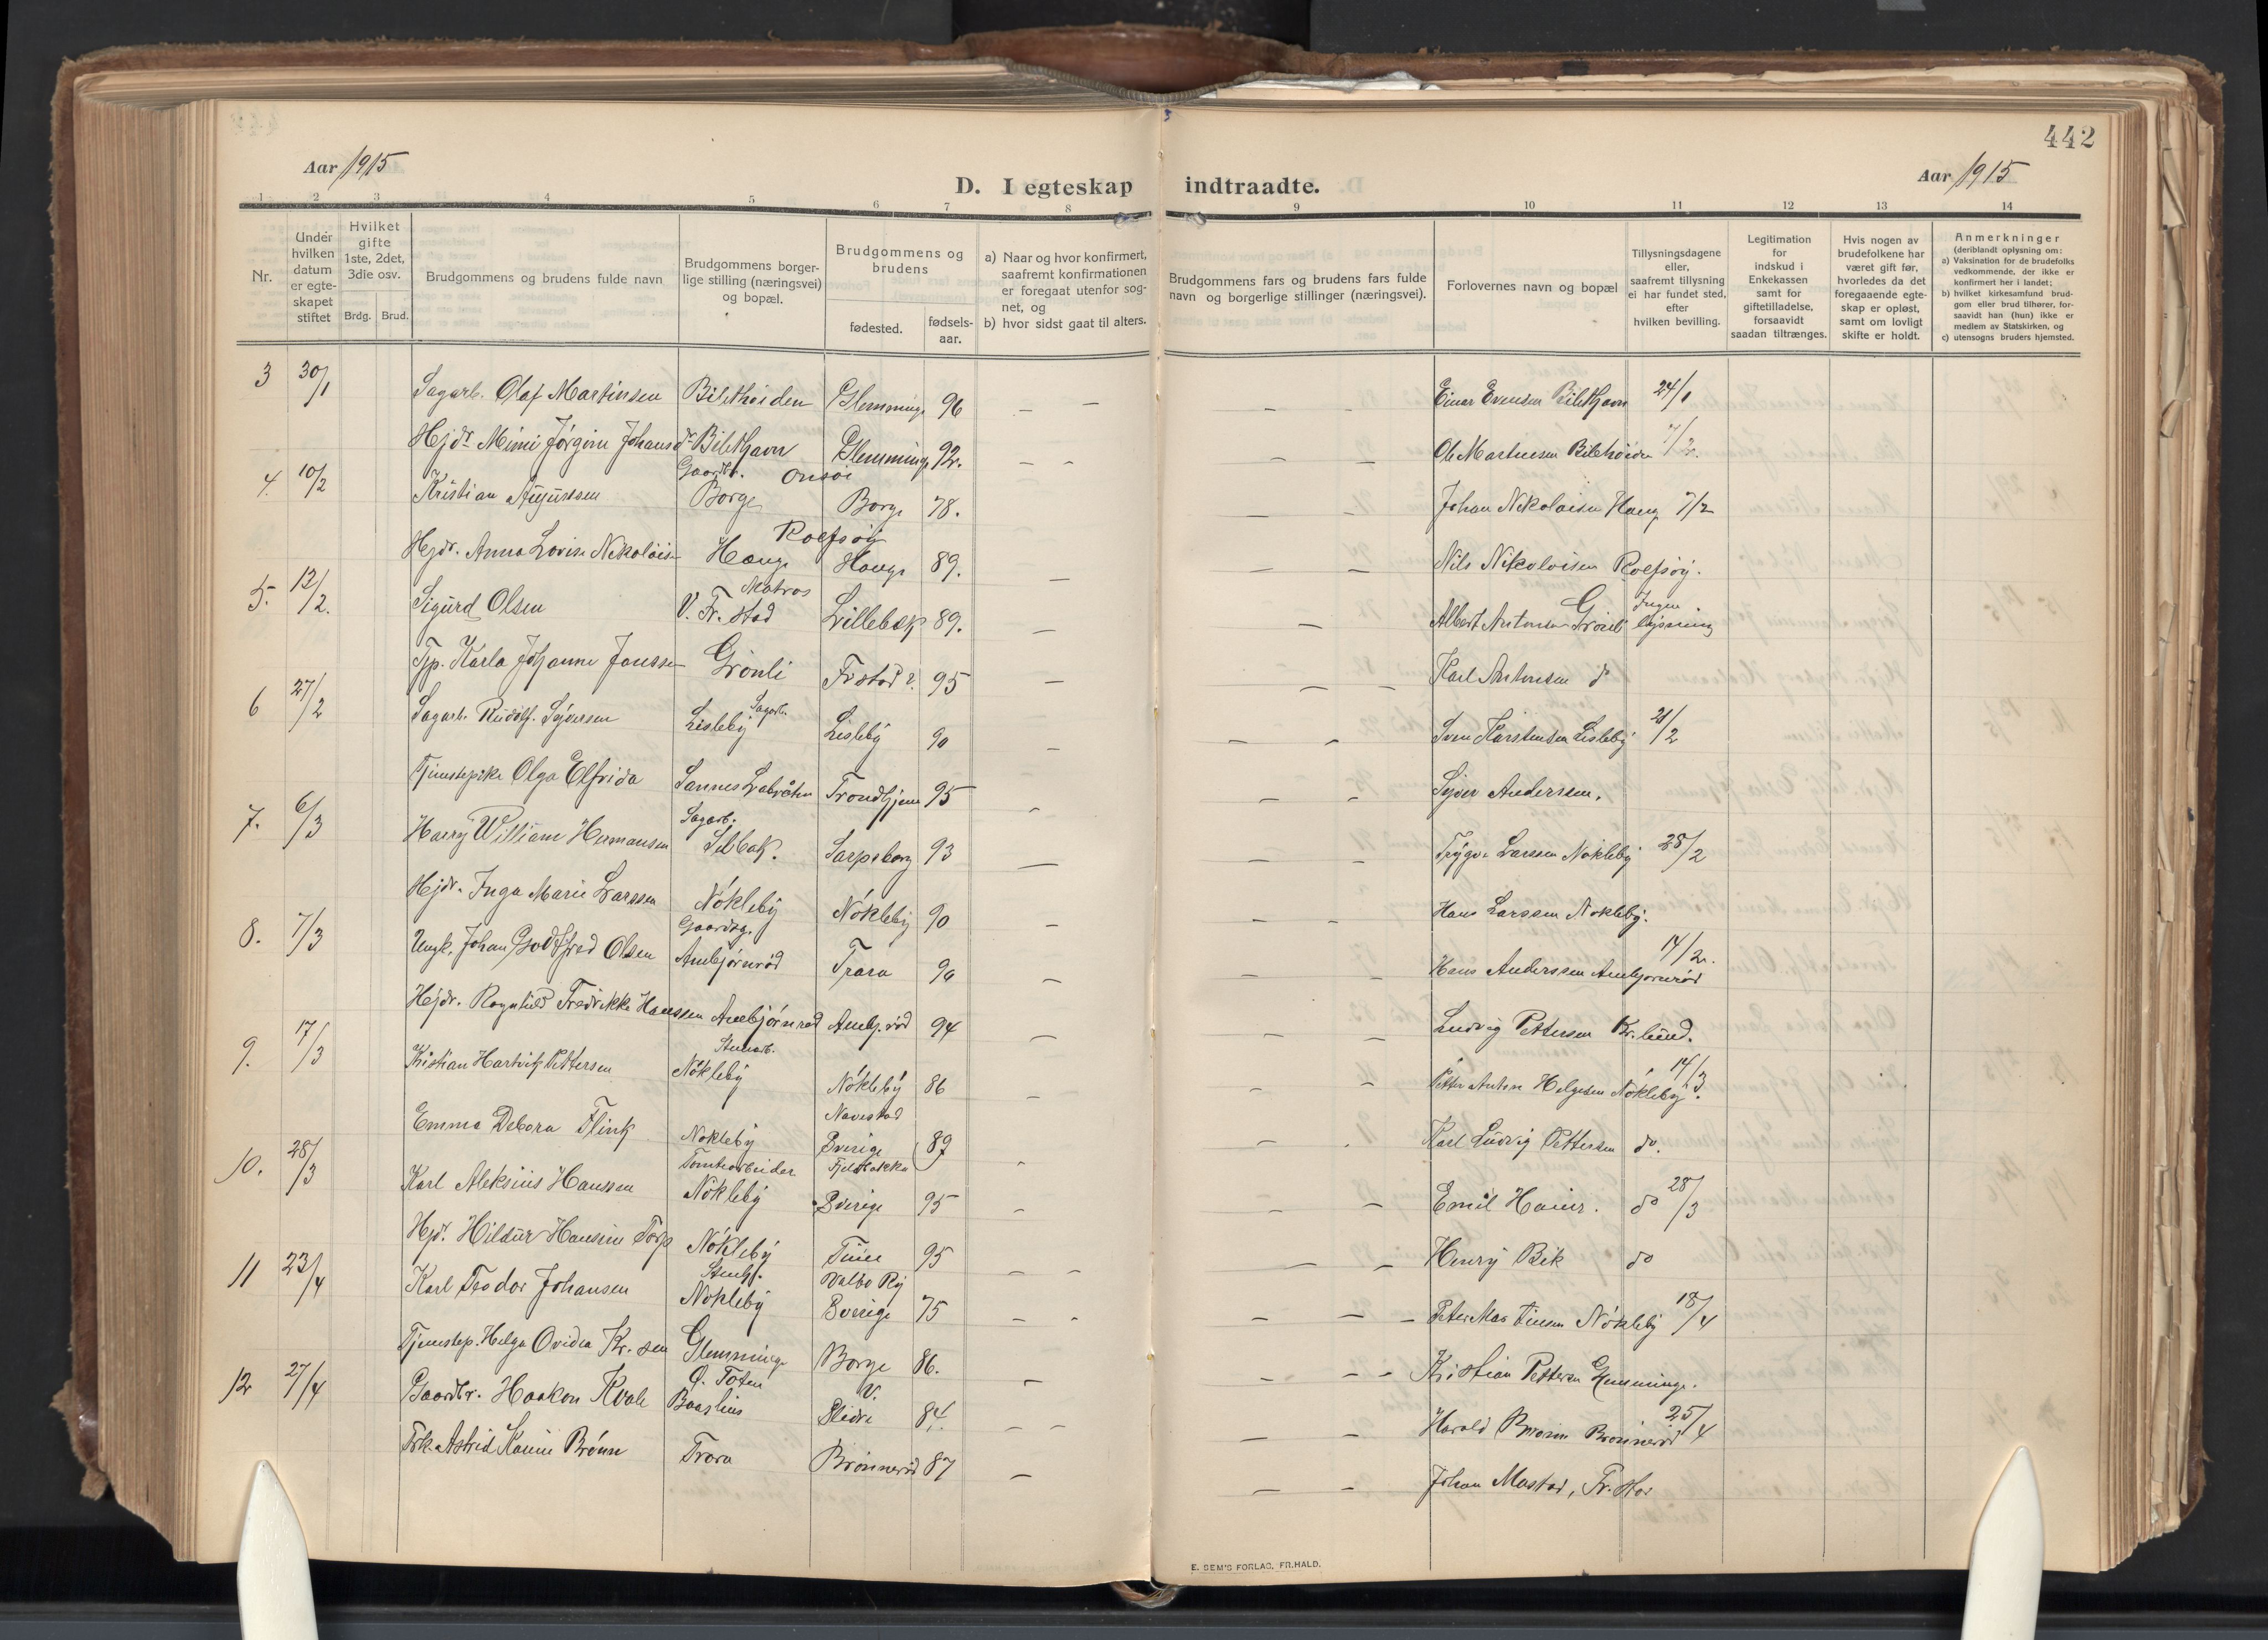 442
Aar 1915
D. I egteskap indtraadte.
Aar 1915
1 2 3 4 5 6 7 8 9 10 11 12 13 14
Nr.
Under hvilken datum er egte-skapet stiftet
Hvilket gifte 1ste, 2det, 3die osv.
Brdg. Brud.
Brudgommens og brudens fulde navn
Brudgommens borger-lige stilling (næringsvei) og bopæl.
Brudgommens og brudens
fødested.
fødsels-aar.
a) Naar og hvor konfirmert, saafremt konfirmationen er foregaat utenfor sog-net, og
b) hvor sidst gaat til alters.
Brudgommens fars og brudens fars fulde navn og borgerlige stillinger (næringsvei).
Forlovernes navn og bopæl
Tillysningsdagene eller, saafremt tillysning ei har fundet sted, efter hvilken bevilling.
Legitimation for indskud i Enkekassen samt for giftetilladelse, forsaavidt saadan tiltrænges.
Hvis nogen av brudefolkene har været gift før, hvorledes da det foregaaende egte-skap er opløst, samt om lovligt skifte er holdt.
Anmerkninger
(deriblandt oplysning om:
a) Vaksination for de brudefolks vedkommende, der ikke er konfirmert her i landet;
b) hvilket kirkesamfund brud-gom eller brud tilhører, for-saavidt han (hun) ikke er medlem av Statskirken, og
c) utensogns bruders hjemsted.
3 30/1 Sagarb. Olaf Martinsen Glemminge 96 — — — — Einar Evensen 24/1
Hejdr. Mimi Jørgine Johansdr Glemminge 92. — — — — Ole Martinsen 7/2.
4. 10/2 Kristian Augussen Gaardbr. Onsöi Borge Borge 78. — — Johan Nikolaisen Haug 7/2
Hejdr. Anna Lovise Nikolaisen Hauge Rolfsöy Hauge 89. — — — Nils Nikolaisen Rolfsöy.
5. 12/2. Sigurd Olsen Matros V. Fr.stad Lillebæk 89. — — Albert Antonsen Grönli Ingen lysning
Tjp. Karla Johanne Janssen Grönli Frstad 95 — — — Karl Antonsen do
6 27/2 Sagarb. Rudolf Syversen Sagarb. Lisleby Lisleby 90 — — — Sven Karstensen Lisleby 21/2
Tjenestepike Olga Elfrida Trondhjem 95 — — — Syver Anderssen.
7. 6/3 Harry William Hermansen Sagarb. Selbak. Sarpsborg 93 — — — Trygve Larssen Nökleby 28/2
Hejdr. Inga Marie Larssen Nökleby Nökleby 90 — — — Hans Larssen Nökleby.
8. 7/3 Ungk. Johan Godtfred Olsen Gaardsg. Ambjörnröd Trara 90 — — — Hans Anderssen Ambjornröd 14/2.
Hejdr. Ragnhild Fredrikke Hanssen Ambjörnröd Ambj.röd 94 — — — Ludvig Pettersen Kr.lund.
9. 17/3 Kristian Hartvig Pettersen Stenarb. Nökleby Nökleby 86 — — — Petter Anton Helgesen Nökleby. 14/3.
Emma Debora Flink Nökleby Navestad Sverige 89 — — Karl Ludvig Pettersen do.
10. 28/3 Karl Aleksius Hanssen Tomtearbeider Nökleby Fjeldbakka Sverige 95 — — — Emil Hauer. do 28/3
Hejdr. Hildur Hansine Torp Nökleby Tune 95 — — — — Henry Bik do
11 23/4 Karl Teodor Johansen Stenh. Nökleby Valbo Ry Sverige 75 — — — — — Peter Martinsen Nökleby 18/4
Tjenestep. Helga Ovidia Kr.sen Glemminge Borge 86. — — — — Kristian Pettersen Glemminge.
12 27/4 Gaardbr. Haakon Kvale Ö. Toten V. Slidre 84. — — — — Harald Brönn Brönneröd 25/4
Frk. Astrid Kamie Brönn Trara Brönneröd 87 — — — Johan Mastad, Fr.stad
E. SEM'S FORLAG, FR.HALD.